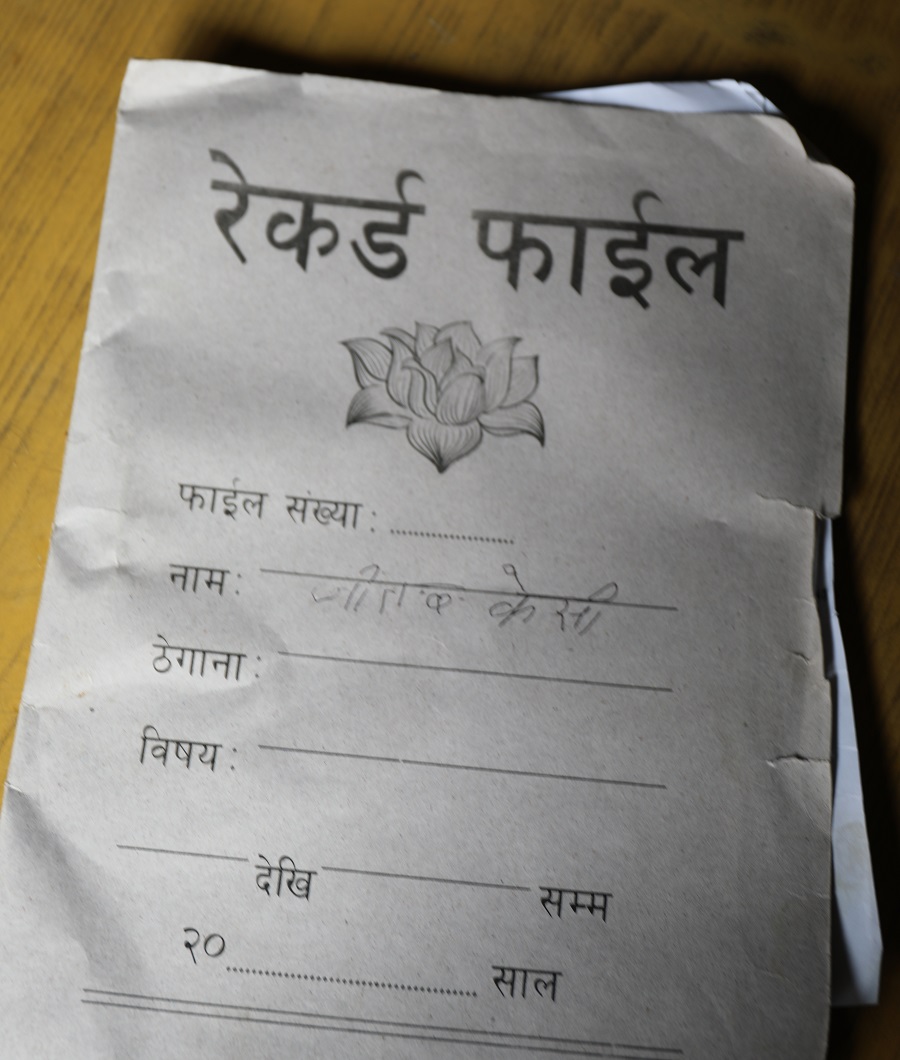 रेकर्ड फाईल
फाईल संख्या : ....................
नाम : के सी
ठेगाना :
विषय :
देखि सम्म
२० .......................................... साल